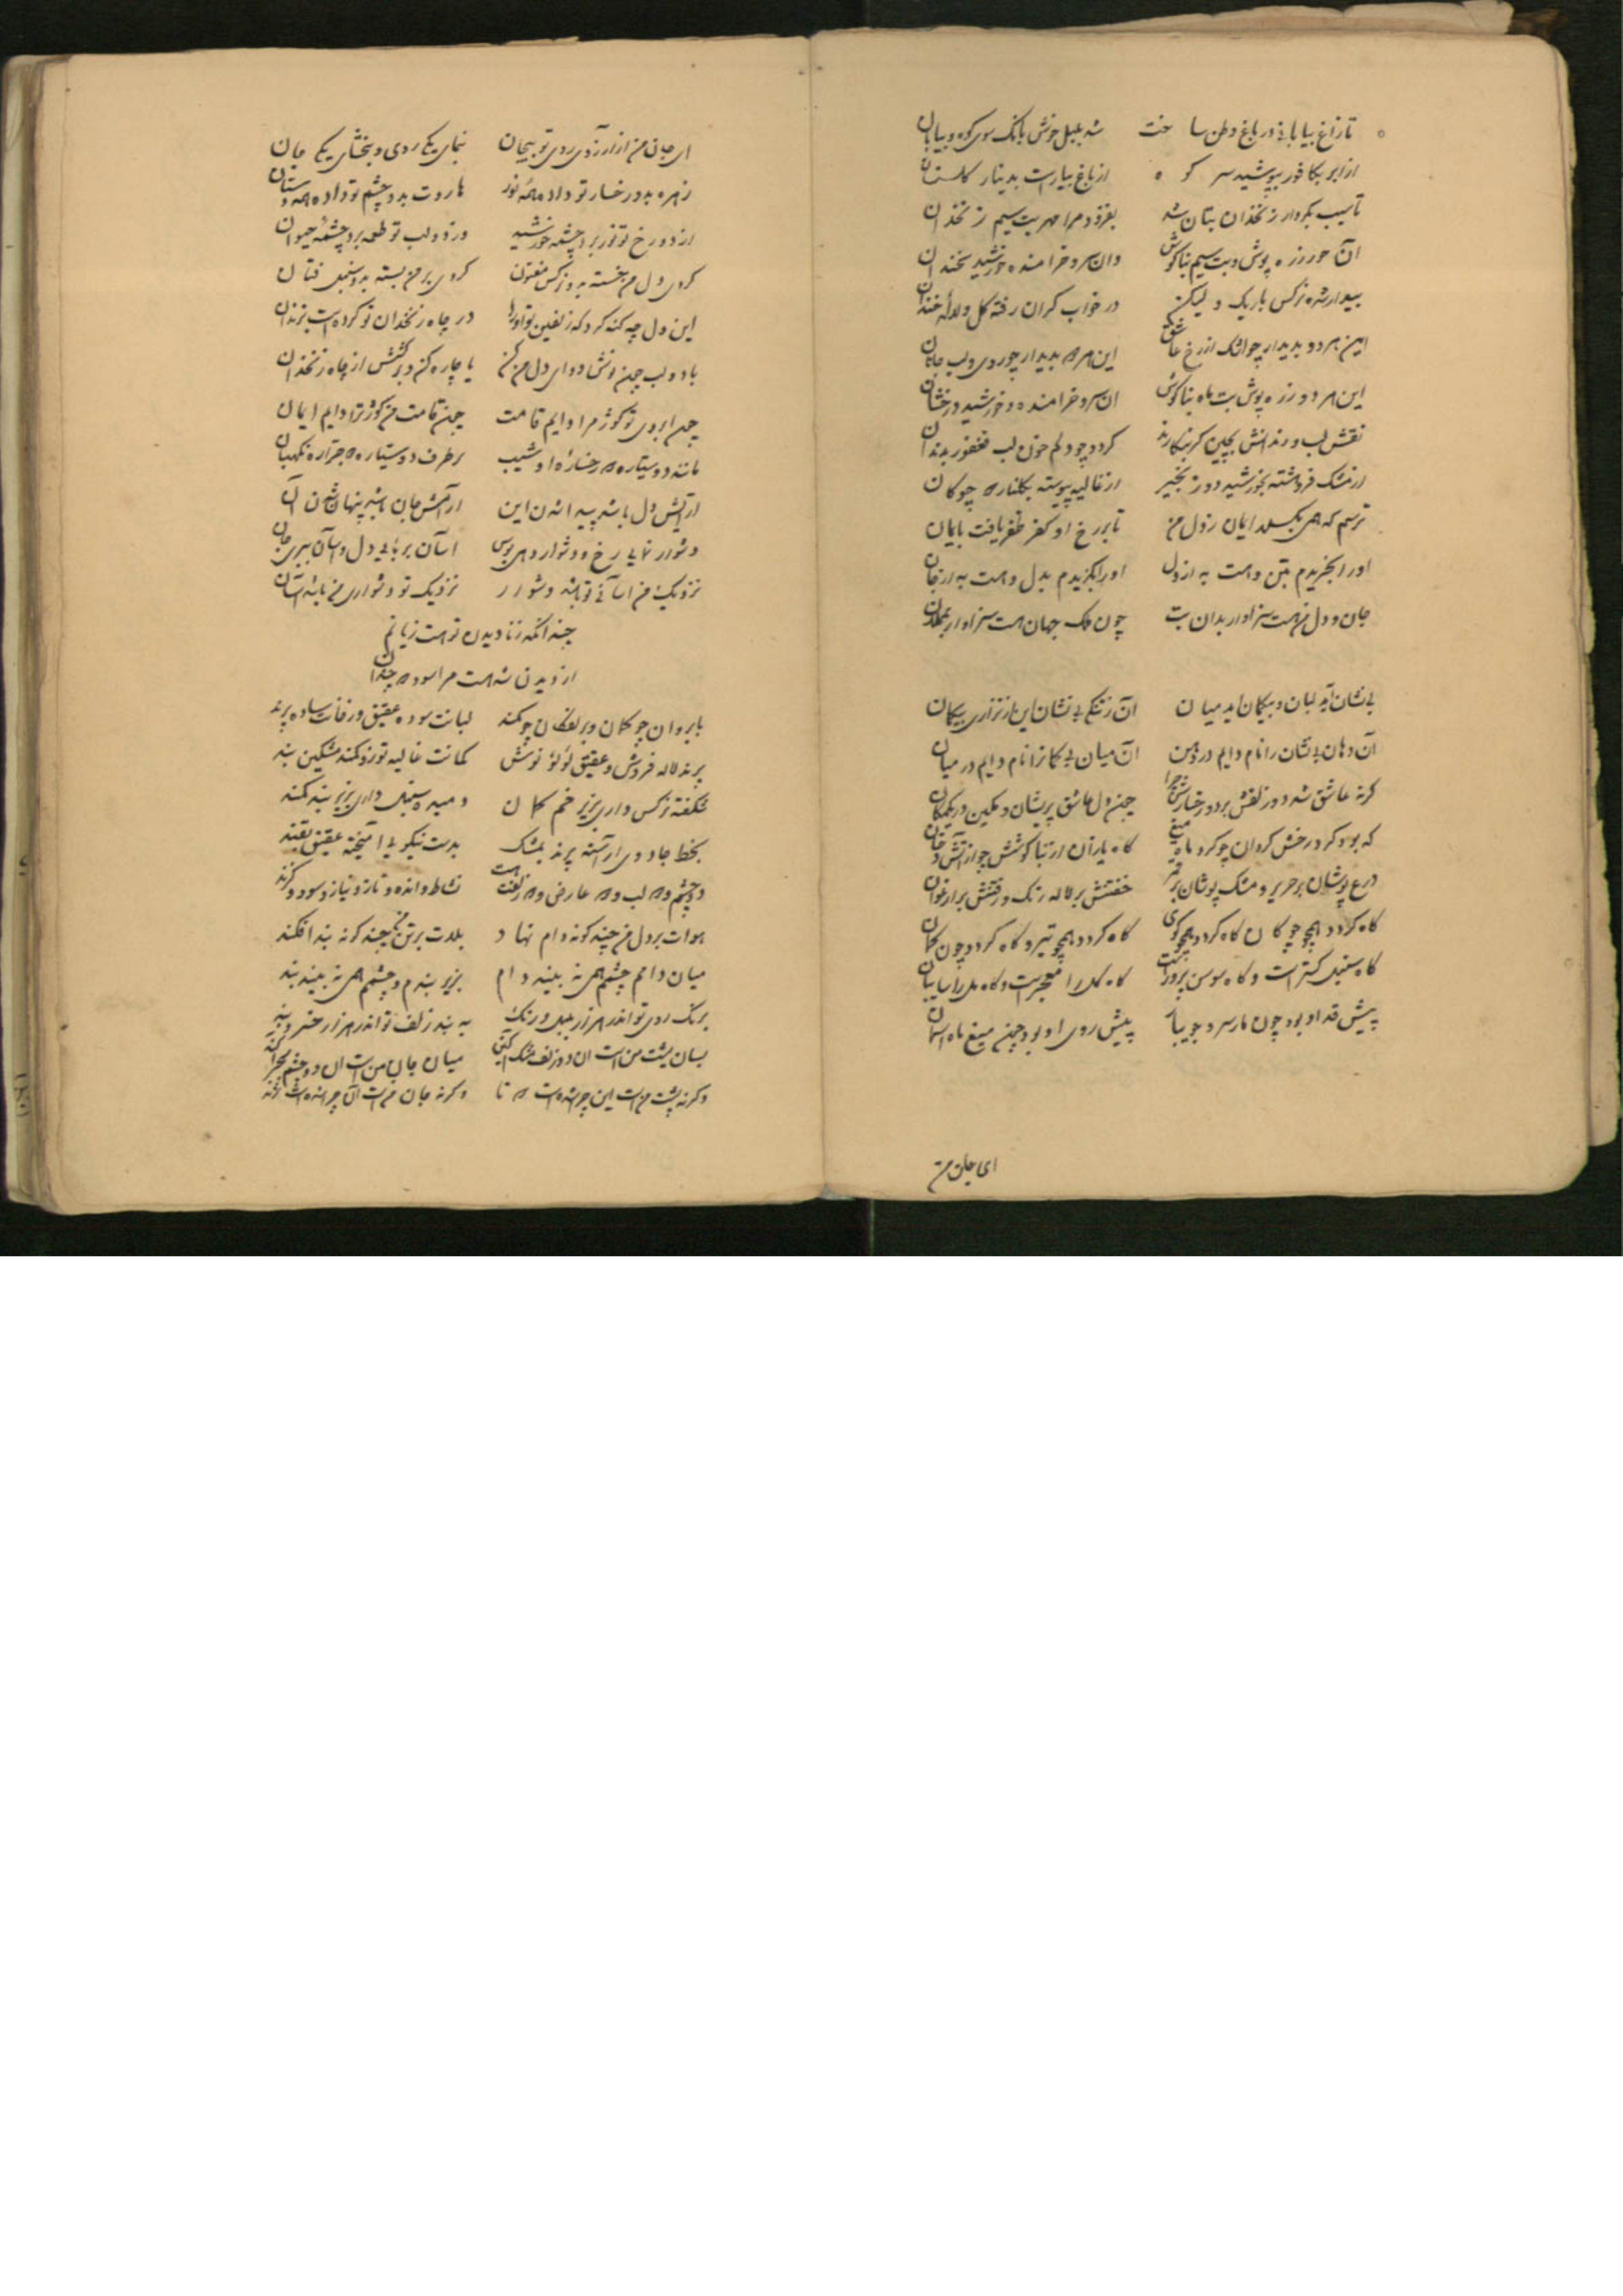 تا زاغ بیابانی در باغ وطن ساخت شد بلبل خوش بانگ سوی کوه و بیابان
از ابر بکافور بپوشید سر کوه از باغ بیاراست بدینار کلستان
تا سیب بکردار زنخدان بتان شد بفزود مرا مهر بت سیم زنخدان
آن حور زره پوش و بت سیم بناکوش وان سرو خرامنده و خورشید سخندان
بیدار شده نرکس باریک و لیکن در خواب کران رفته کل و لاله خندان
این هر دو بدیدار چو اشک از رخ عاشق این هر دو بدیدار چو روی و لب جانان
این هر دو زره پوش بت ماه بناکوش ان سرو خرامنده و خورشید درخشان
نقش لب و دندانش بچین کر بنکارند کردد چو دلم خون لب فغفور بدندان
از مشک فروهشته بخورشید دو زنجیر از غالیه پیوسته بکلنار دو چوکان
ترسم که همی بکسلد ایمان ز دل من تا بر رخ او کفر ظفر یافت بایمان
او را بخریدم بتن و هست به از دل او را بکزیدم بدل و هست به از جان
جان و دل من هست سزاوار بدان بت چون ملک جهان هست سزاوار بمملان
بی نشان آید لبان و بیکمان اید میان آن ز تنکی بی نشان این از نزاری بیکمان
آن دهان بی نشان را نام دایم در دهن آن میان بی کمان را نام دایم در میان
کرنه عاشق شد دو زلفش بر دو رخسارش چرا چون دل عاشق پریشان و مکین در یکمکان
که بود کرد رخش کردان چو کرد ماه میغ کاه یازان از بناکوشش چو از آتش دخان
درع پوشان بر حریر و مشک پوشان بر قمر خفتنش بر لاله رنک و رفتنش بر ارغوان
کاه کردد همچو چوکان کاه کردد همچو کوی کاه کردد همچو تیر و کاه کردد چون کمان
کاه سنبل کستر است و کاه سوسن پرور است کاه کل را معجر است و کاه مل را سایبان
پیش قد او بود چون مار سرو جویبار پیش روی او بود چون میغ ماه اسمان
ای جان من
ای جان من از آرزوی روی تو پیچان بنمای یکی روی و ببخشای یکی جان
زهره بدو رخسار تو داده همه نور هاروت بدو چشم تو داده همه دستان
از دو رخ تو نور برد چشمه خورشید وز دو لب تو طعمه برد چشمه حیوان
کردی دل من خسته بدو نرکس مفتون کردی بر من بسته بدو سنبل فتان
این دل چه کنه کرد که زلفین تو او را در چاه زنخدان تو کرده است بزندان
با دو لب چون نوش دوای دل من کن یا چاره کن و برکشش از چاه زنخدان
چون ابروی تو کوژ مرا دایم قامت چون قامت من کوژ ترا دایم ایمان
مانند دو ستاره دو رخساره او شیب بر طرف دو ستاره دو جراره نکهبان
از آتش دل باشد پیدا شدن این از آتش جان باشد پنهان شدن آن
دشوار نمایی رخ و دشوار دهی بوس اسان بربایی دل و اسان ببری جان
نزدیک من اسانی تو باشد دشوار نزدیک تو دشواری من باشد آسان
چندانکه ز نادیدن تو هست زیانم
از دیدن شه هست مرا سود دو چندان
بابروان چو کمان و بزلفکان چو کمند لبانت سوده عقیق و رخانت ساده پرند
پرند لاله فروش و عقیق لؤلؤ نوش کمانت غالیه توز و کمند مشکین بند
شکفته نرکس داری بزیر خم کمان دمیده سنبل داری بزیر بند کمند
بخط جادوی آراسته پرند بمشک بدست نیکویی آمیخته عقیق بقند
دو چشم و دو لب و دو عارض و دو زلفت هست نشاط و انده و ناز و نیاز و سود و کزند
هوات بر دل من چند کونه دام نهاد بلات بر تن من چند کونه بند افکند
میان دامم و چشمم همی نه بیند دام بزیر بندم و چشمم همی نه بیند بند
برنک روی تو اندر هزار بلبل و رنک به بند زلف تو اندر هزار عنبر و بند
بسان پشت من است ان دو زلف مشک آکین میان جان من است ان دو چشم سحر آکند
و کرنه پشت من است این چرا شده است دو تا و کرنه جان من است آن چرا شده است نژند